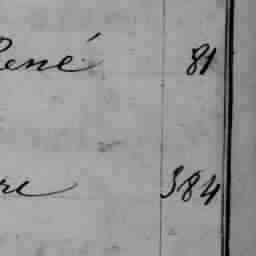 René 81
re 384